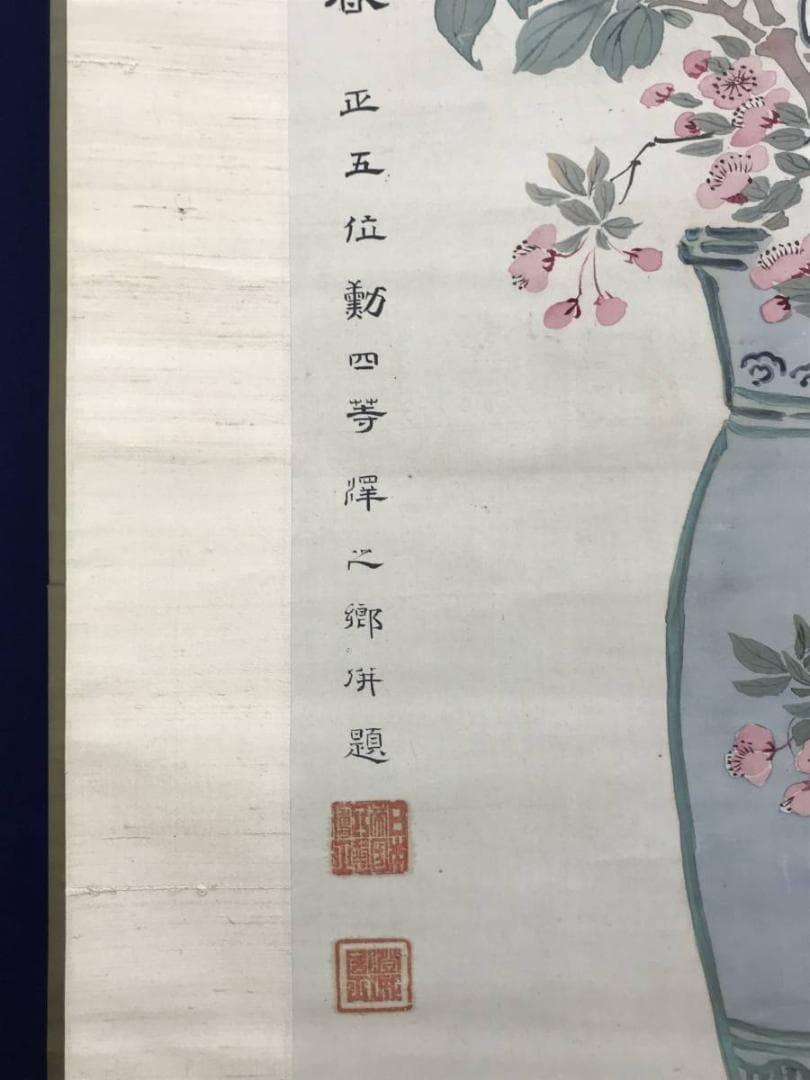 春 正五位勳四等澤之鄉併題